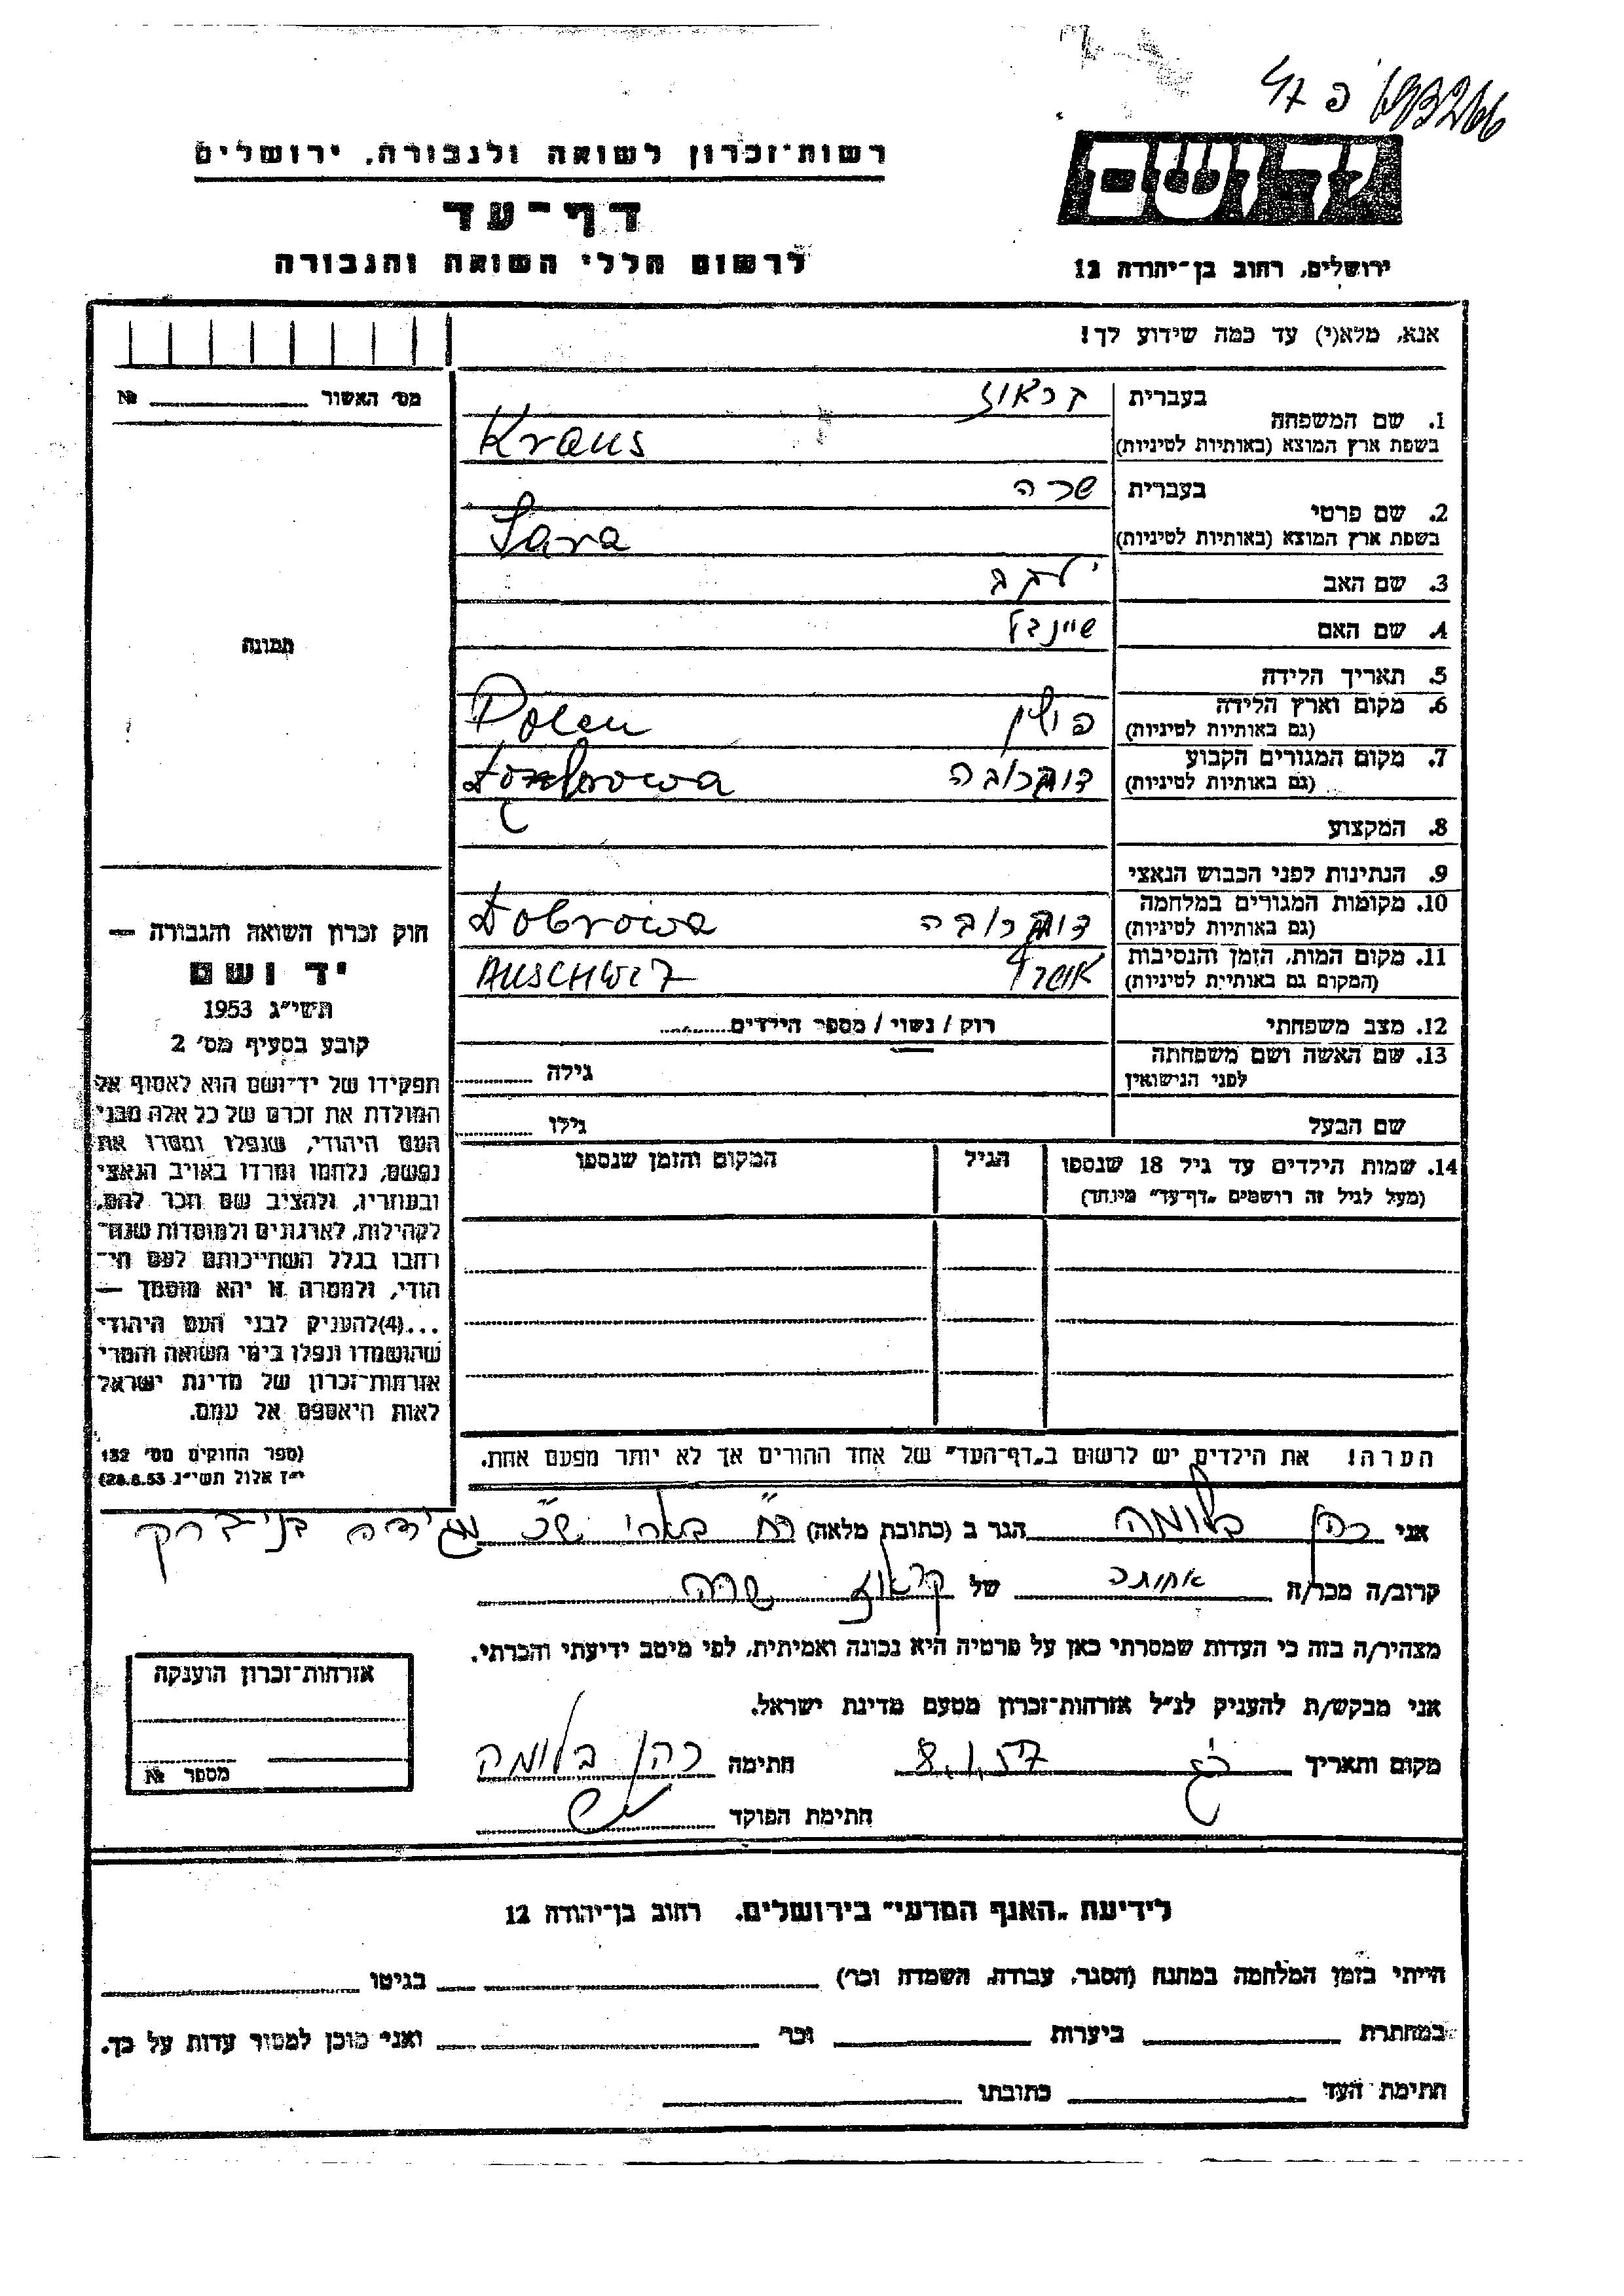 693266 פ 47
יד ושם
ירושלים, רחוב בן־יהודה 12
רשות־זכרון לשואה ולגבורה, ירושלים
דף־עד
לרשום חללי השואה והגבורה
אנא, מלא(י) עד כמה שידוע לך!
מס׳ האשור № 
1. שם המשפחה בעברית קראוז
בשפת ארץ המוצא (באותיות לטיניות) Kraus
2. שם פרטי בעברית שרה
בשפת ארץ המוצא (באותיות לטיניות) Sara
3. שם האב יעקב
4. שם האם שיינדל
5. תאריך הלידה
6. מקום וארץ הלידה פולין Polen
(גם באותיות לטיניות)
7. מקום המגורים הקבוע דומברובה
(גם באותיות לטיניות)
8. המקצוע
9. הנתינות לפני הכבוש הנאצי
10. מקומות המגורים במלחמה דומברובה Dobrowa
(גם באותיות לטיניות)
11. מקום המות, הזמן והנסיבות AUSCHWIZ
(המקום גם באותיות לטיניות)
12. מצב משפחתי רוק / נשוי / מספר הילדים
13. שם האשה ושם משפחתה לפני הנישואין גילה
שם הבעל גילו
14. שמות הילדים עד גיל 18 שנספו הגיל המקום והזמן שנספו
(מעל לגיל זה רושמים „דף־עד״ מיוחד)
הערה! את הילדים יש לרשום ב„דף־העד״ של אחד ההורים אך לא יותר מפעם אחת.
תמונה
חוק זכרון השואה והגבורה —
יד ושם
תשי״ג 1953
קובע בסעיף מס׳ 2
תפקידו של יד־ושם הוא לאסוף אל
המולדת את זכרם של כל אלה מבני
העם היהודי, שנפלו ומסרו את
נפשם, נלחמו ומרדו באויב הנאצי
ובעוזריו, ולהציב שם וזכר להם,
לקהילות, לארגונים ולמוסדות שנח־
רבו בגלל השתייכותם לעם הי־
הודי, ולמטרה זו יהא מוסמך —
...(4)להעניק לבני העם היהודי
שהושמדו ונפלו בימי השואה והמרי
אזרחות־זכרון של מדינת ישראל
לאות היאספם אל עמם.
(ספר החוקים מס׳ 132
י״ז אלול תשי״ג 28.8.53)
אני כהן בלומה הגר ב (כתובת מלאה) בני־ברק
קרוב/ה מכר/ה אחותה של קראוז שרה
מצהיר/ה בזה כי העדות שמסרתי כאן על פרטיה היא נכונה ואמיתית, לפי מיטב ידיעתי והכרתי.
אני מבקש/ת להעניק לנ״ל אזרחות־זכרון מטעם מדינת ישראל.
מקום ותאריך 8.1.57 חתימה כהן בלומה
חתימת הפוקד
אזרחות־זכרון הוענקה
מספר №
לידיעת „האגף המדעי״ בירושלים, רחוב בן־יהודה 12
הייתי בזמן המלחמה במחנה (הסגר, עבודה, השמדה וכו׳) בגיטו
במחתרת ביערות וכו׳ ואני מוכן למסור עדות על כך.
חתימת העד כתובתו